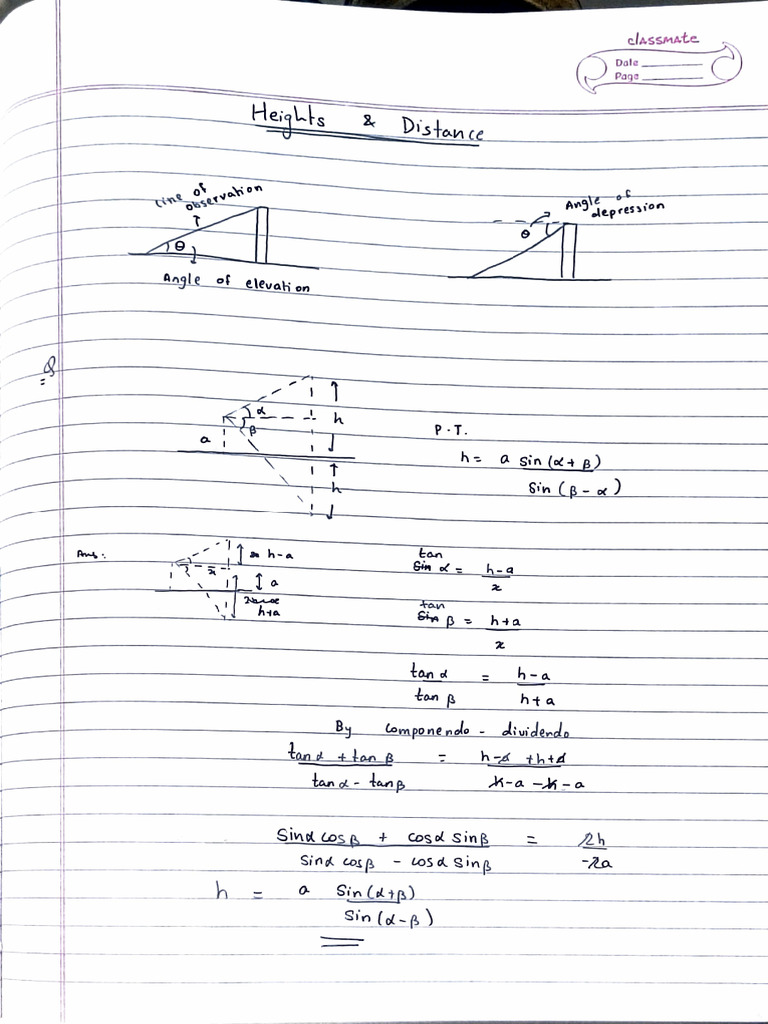 classmate
Date
Page
Heights & Distance
Line of observation
θ
Angle of elevation
Angle of depression
θ
Q
α
β
a
h
h
P.T.
h = a sin(α + β)
sin(β - α)
Ans:
h-a
x
a
h+a
tan
Sin α = h-a
x
tan
Sin β = h+a
x
tan α = h-a
tan β h+a
By componendo - dividendo
tan α + tan β = h-a + h+a
tan α - tan β h-a - h-a
Sin α cos β + cos α Sin β = 2h
Sin α cos β - cos α Sin β -2a
h = a Sin(α+β)
Sin(α-β)